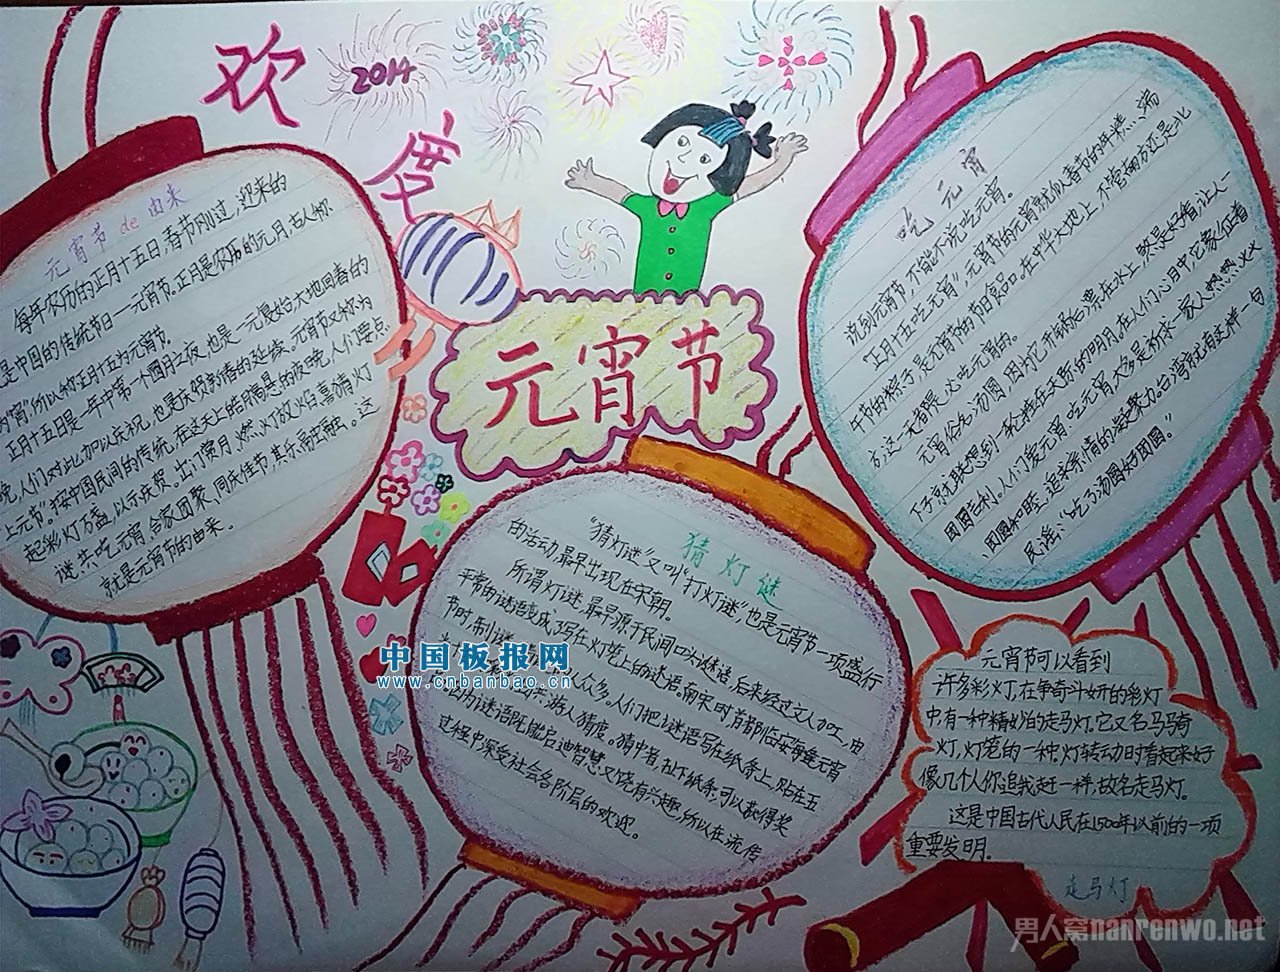 欢
度
2014
元宵节
元宵节de由来
每年农历的正月十五日,春节刚过,迎来的
是中国的传统节日—元宵节.正月是农历的元月,古人称
为"宵",所以称正月十五为元宵节.
正月十五日是一年中第一个月圆之夜,也是一元复始,大地回春的
晚,人们对此加以庆祝,也是庆贺新春的延续.元宵节又称为
上元节".按中国民间的传统,在这天上皓月高悬的夜晚,人们要点
起彩灯万盏,以示庆贺.出门赏月、燃灯放焰、喜猜灯
谜、共吃元宵、合家团聚、同庆佳节,其乐融融。这
就是元宵节的由来.
吃元宵
说到元宵节,不能不说吃元宵。
"正月十五吃元宵",元宵节的元宵就似春节的年糕、端
午节的粽子,是元宵节的节日食品.在中华大地上,不管南方还是北
方这一天都是必吃元宵的。
元宵俗名:汤圆,因为它开锅后漂在水上,煞是好看,让人一
下子就联想到一轮挂在天际的明月.在人们心目中,它象征着
团团吉利。人们爱元宵、吃元宵,大多是祈求一家人热热火火
、团圆和旺、追求亲情的凝聚力。台湾就有这样一句
民谣:"吃了汤圆好团圆。"
猜灯谜
"猜灯谜"又叫"打灯谜",也是元宵节一项盛行
的活动,最早出现在宋朝.
所谓灯谜,最早源于民间口头谜语,后来经过文人加工,由
平常的谜语变成了写在灯笼上的谜语.南宋时首都临安每逢元宵
节时,制谜人众多。人们把谜语写在纸条上,贴在五
供游人猜度。猜中者,扯下纸条,可以换得奖
为谜语既能启迪智慧又饶有兴趣,所以在流传
过程中深受社会各阶层的欢迎.
元宵节可以看到
许多彩灯,在争奇斗妍的彩灯
中,有一种精妙的走马灯.它又名马骑
灯,灯笼的一种.灯转动时看起来好
像几个人你追我赶一样,故名走马灯.
这是中国古代人民在1500年以前的一项
重要发明.
走马灯
中国板报网
www.cnbanbao.cn
男人窝nanrenwo.net